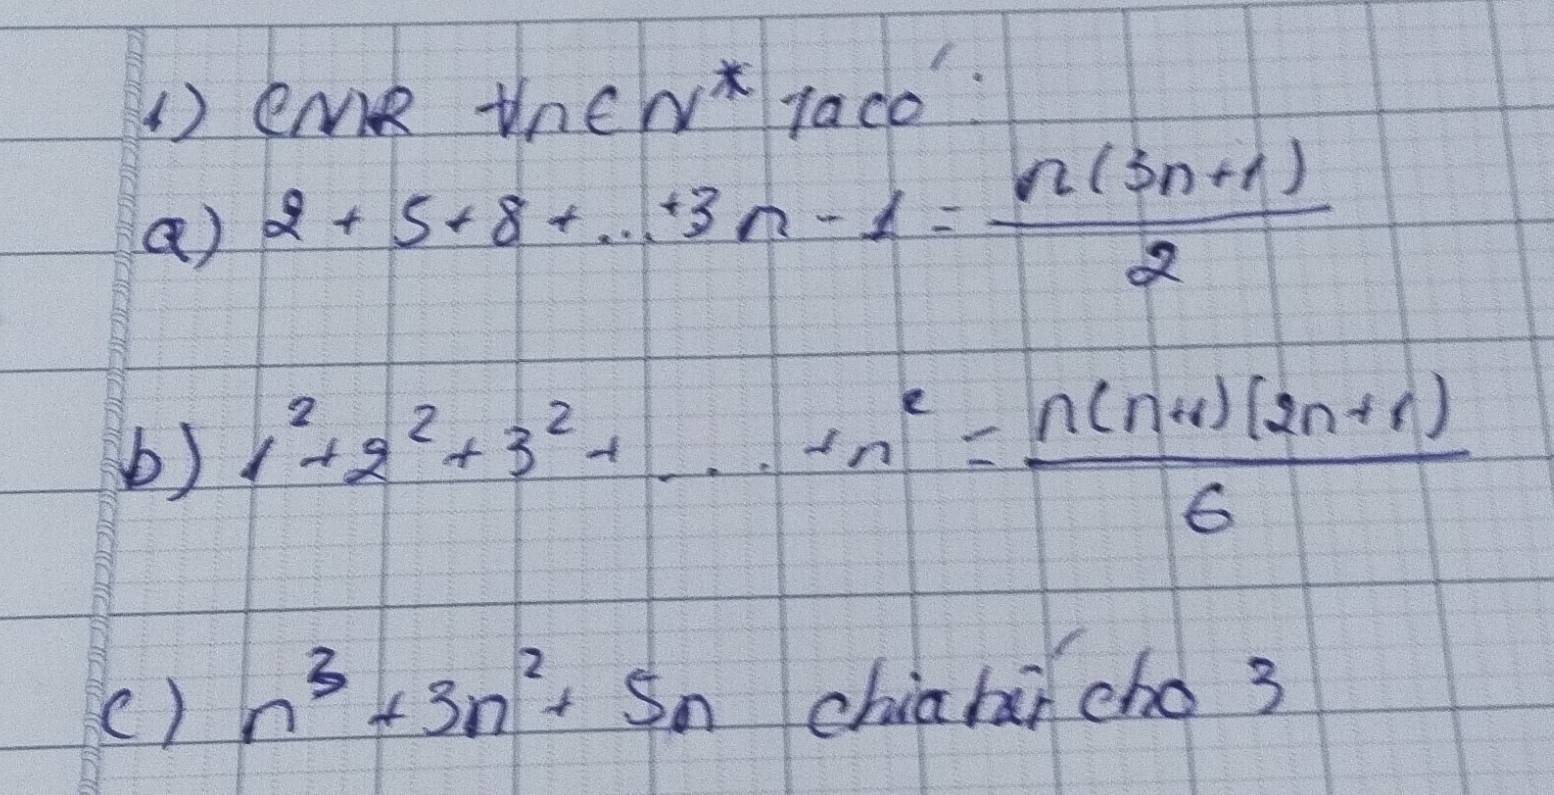 1) CMR ∀n∈N* ta có:
a) 2 + 5 + 8 + ... + 3n - 1 = n(3n+1)/2
b) 1² + 2² + 3² + .... + n² = n(n+1)(2n+1)/6
c) n³ + 3n² + 5n chia hết cho 3